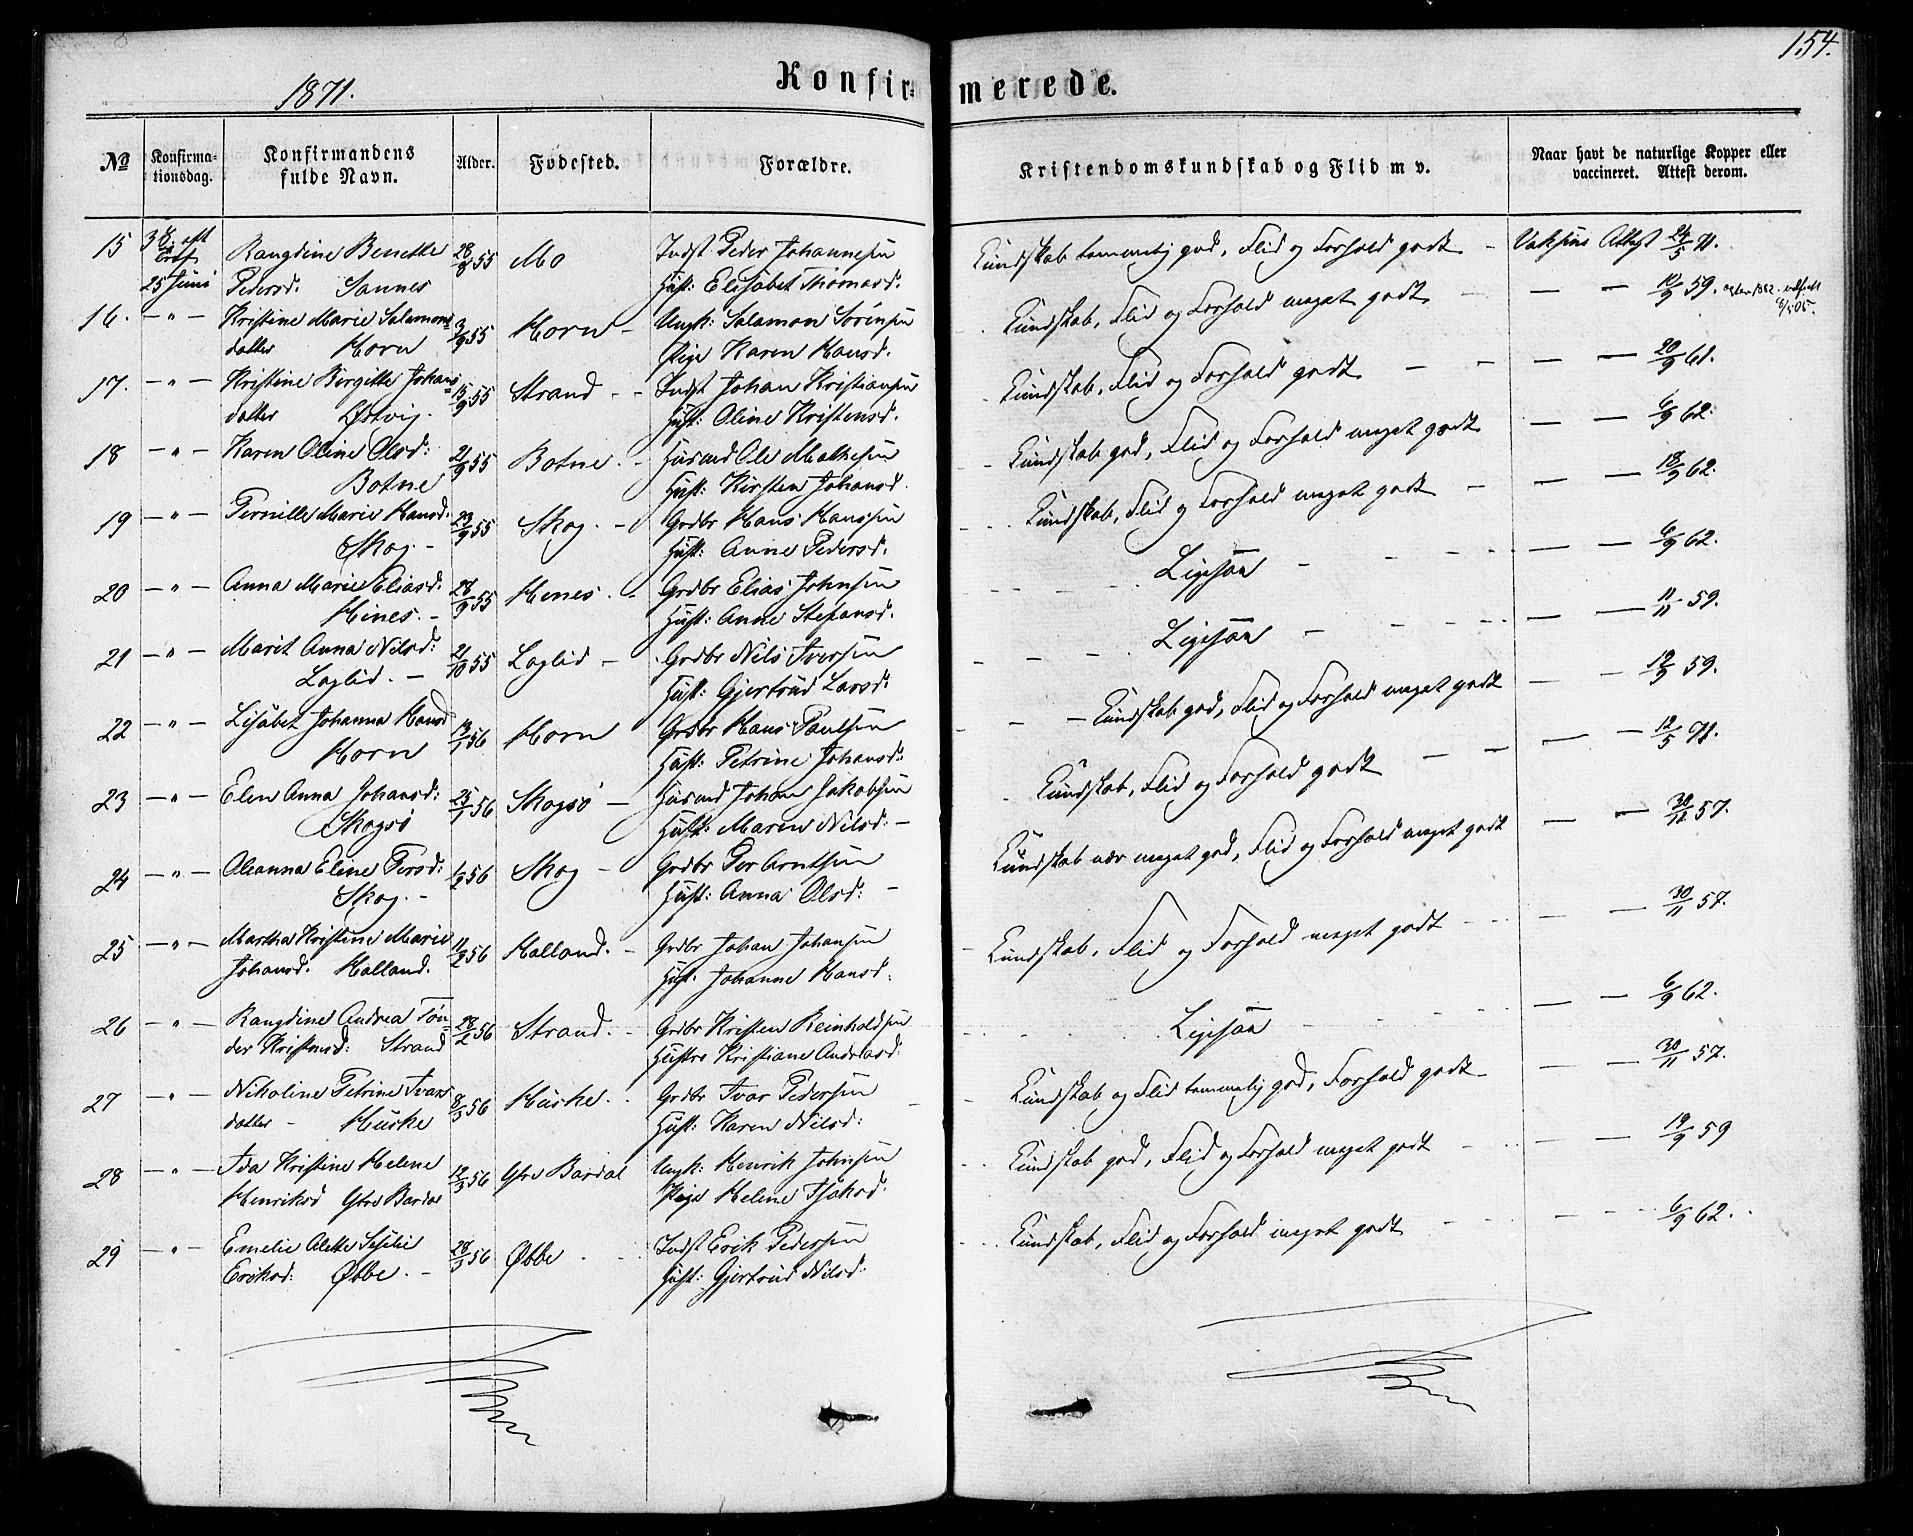 154.
1871.
Konfir=merede.
No Konfirma=tionsdag. Konfirmandens fulde Navn. Alder. Fødested. Forældre. Kristendomskundskab og Flid m v. Naar havt de naturlige Kopper eller vaccineret. Attest derom.
15 25 Juni Rangdine Benette 28/8 55 Mo Indst Peder Johannesen Kundskab temmelig god, Flid og Forhold godt - Vaksins Attest 24/5 71.
Pedersd. Sannes Hust: Elisabet Thomasd.
16. - " - Kristine Marie Salamons= 3/9 55 Horn - Ungk: Salamon Sørensen Kundskab, Flid og Forhold meget godt - - - 12/9 59.
datter Horn Pige Karen Hansd.
17. - " - Kristine Birgitte Johans= 15/9 55 Strand - - Indst Johan Kristiansen Kundskab, Flid og Forhold godt - - - - 20/9 61.
datter Østvig. Hust: Oline Kristensd.
18 - " - Karen Oline Olsd: 21/9 55 Botne. - Husmd Ole Mathesen Kundskab god, Flid og Forhold meget godt - - 6/9 62.
Botne Hust: Kirsten Johansd.
19 - " - Pernille Marie Hansd. 23/9 55 Skog. - Grdbr Hans Hanssen Kundskab, Flid og Forhold meget godt - - - 18/9 62.
Skog - Hust: Anne Pedersd.
20 - " - Anna Marie Eliasd. 28/9 55 Henes. - Grdbr Elias Johnsen Ligesaa - - - 6/9 62.
Hines. - Hust: Anne Stefansd.
21 - " - Marit Anna Nilsd: 21/10 55 Laglid - Grdbr Nils Iversen Ligesaa - - - 11/11 59.
Laglid. - Hust: Gjertrud Larsd:
22 - " - Lisabet Johanna Hansd 19/1 56 Horn Grdbr Hans Paulsen - - Kundskab god, Flid og Forhold meget godt - - 19/9 59.
Horn Hust: Petrine Johansd:
23 - " - Elen Anna Johansd: 25/1 56 Skogsø - Husmd Johan Jakobsen Kundskab, Flid og Forhold godt - - - - 12/5 71.
Skogsø Hust: Maren Nilsd: -
24 - " - Oleanna Eline Persd: 1/2 56 Skog - Grdbr Per Arntsen Kundskab nær meget god, Flid og Forhold meget godt - - 30/11 57.
Skog. - Hust: Anna Olsd: -
25 - " - Martha Kristine Marie 11/2 56 Halland. - Grdbr Johan Johansen Kundskab, Flid og Forhold meget godt - - - 30/11 57.
Johansd. Halland. Hust. Johanne Hansd:
26 - " - Rangdine Andrea Tøn= 28/2 56 Strand. - Grdbr Kristen Reinholdsen Ligesaa - - - 6/9 62.
der Kristensd: Strand Hustro Kristiane Andreasd:
27 - " - Nikoline Petrine Ivars 8/3 56 Huske. Grdbr Ivar Pedersen Kundskab og Flid temmelig god, Forhold godt - - 30/11 57.
datter - Huske Hust: Karen Nilsd:
28 - " - Ida Kristine Helene 12/3 56 Ytre Bardal Ungk: Henrik Johnsen Kundskab god, Flid og Forhold meget godt - - - 19/9 59
Henriksd Ytre Bardal Pige Helene Isaksd.
29 - " - Emelie Alette Sesilie 28/3 56 Øbbe - Indst Erik Pedersen Kundskab, Flid og Forhold meget godt - - - 6/9 62.
Eriksd: Øbbe. - Hust: Gjertrud Nilsd: